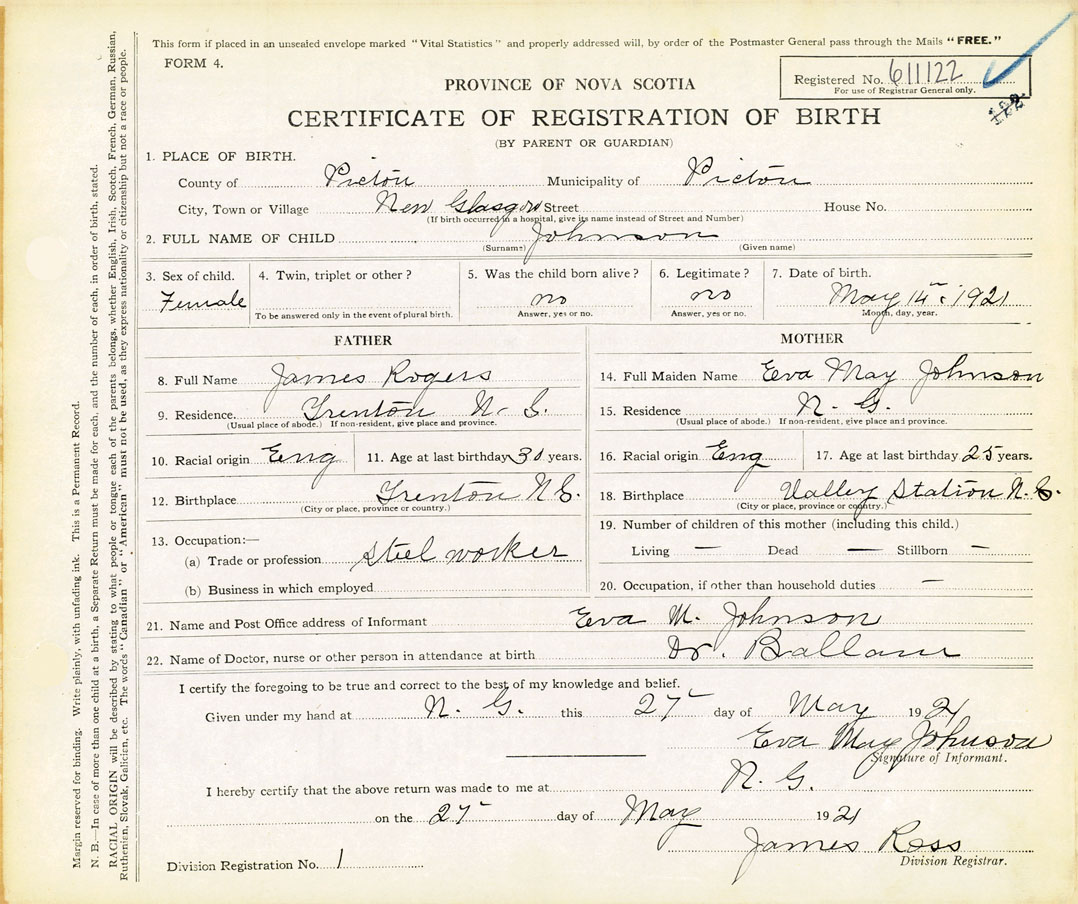 This form if placed in an unsealed envelope marked "Vital Statistics" and properly addressed will, by order of the Postmaster General pass through the Mails "FREE."
FORM 4.
Registered No. 611122
For use of Registrar General only.
PROVINCE OF NOVA SCOTIA
CERTIFICATE OF REGISTRATION OF BIRTH
(BY PARENT OR GUARDIAN)
1. PLACE OF BIRTH.
County of Pictou Municipality of Pictou
City, Town or Village New Glasgow Street House No.
(If birth occurred in a hospital, give its name instead of Street and Number)
2. FULL NAME OF CHILD Johnson
(Surname) (Given name)
3. Sex of child. 4. Twin, triplet or other? 5. Was the child born alive? 6. Legitimate? 7. Date of birth.
Female no no May 14th 1921
To be answered only in the event of plural birth. Answer, yes or no. Answer, yes or no. Month, day, year.
FATHER
8. Full Name James Rogers
9. Residence. Trenton N. S.
(Usual place of abode.) If non-resident, give place and province.
10. Racial origin Eng 11. Age at last birthday 30 years.
12. Birthplace Trenton N S.
(City or place, province or country.)
13. Occupation:—
(a) Trade or profession steel worker
(b) Business in which employed
MOTHER
14. Full Maiden Name Eva May Johnson
15. Residence N. G.
(Usual place of abode.) If non-resident, give place and province.
16. Racial origin Eng 17. Age at last birthday 25 years.
18. Birthplace Valley Station N. S.
(City or place, province or country.)
19. Number of children of this mother (including this child.)
Living — Dead — Stillborn —
20. Occupation, if other than household duties —
21. Name and Post Office address of Informant Eva M. Johnson
22. Name of Doctor, nurse or other person in attendance at birth Dr.
I certify the foregoing to be true and correct to the best of my knowledge and belief.
Given under my hand at N. G. this 27 day of May 1921
Eva May Johnson
Signature of Informant.
I hereby certify that the above return was made to me at N. G.
on the 27 day of May 1921
James Ross
Division Registrar.
Division Registration No. 1
Margin reserved for binding. Write plainly, with unfading ink. This is a Permanent Record.
N. B.—In case of more than one child at a birth, a Separate Return must be made for each, and the number of each, in order of birth, stated.
RACIAL ORIGIN will be described by stating to what people or tongue each of the parents belongs, whether English, Irish, Scotch, French, German, Russian,
Ruthenian, Slovak, Galician, etc. The words "Canadian" or "American" must not be used, as they express nationality or citizenship but not a race or people.